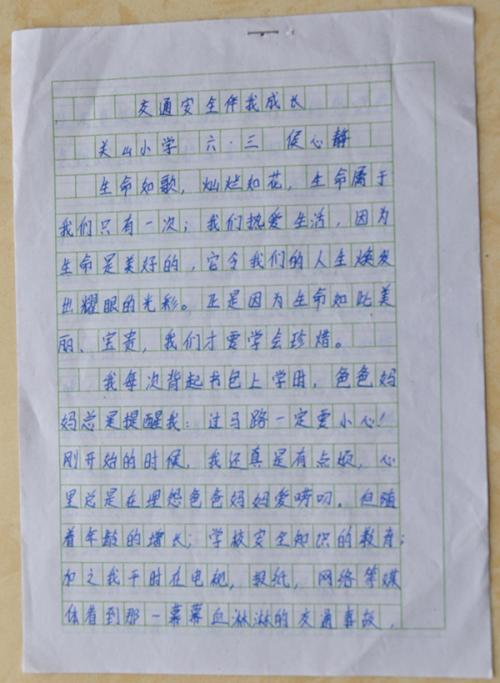 交通安全伴我成长
关山小学 六.三 侯心静
生命如歌，灿烂如花，生命属于
我们只有一次；我们热爱生活，因为
生命是美好的，它令我们的人生焕发
出耀眼的光彩。正是因为生命如此美
丽、宝贵，我们才要学会珍惜。
我每次背起书包上学时，爸爸妈
妈总是提醒我：过马路一定要小心！
刚开始的时候，我还真是有点烦，心
里总是在埋怨爸爸妈妈爱唠叨。但随
着年龄的增长；学校安全知识的教育；
加之我平时在电视，报纸，网络等媒
体看到那一幕幕血淋淋的交通事故，